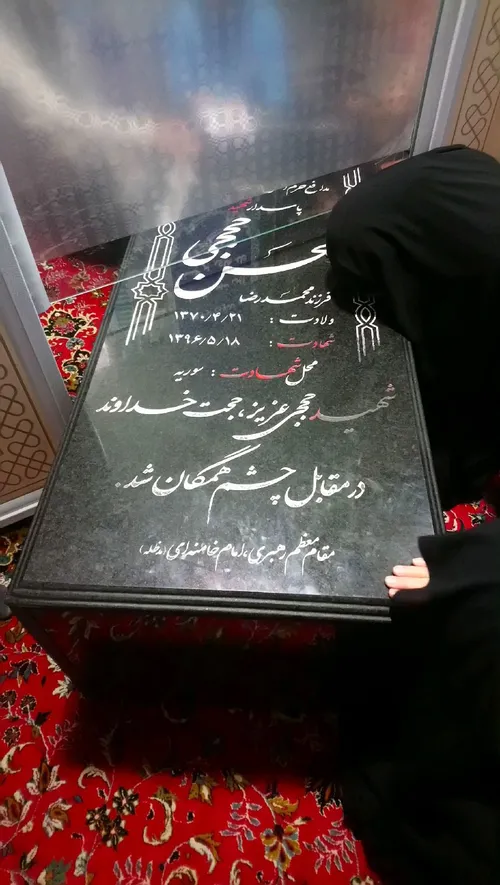 مدافع حرم
پاسدار شهید
محسن حججی
فرزند محمدرضا
ولادت : ۱۳۷۰/۴/۲۱
شهادت : ۱۳۹۶/۵/۱۸
محل شهادت : سوریه
شهید حججی عزیز، حجت خداوند
در مقابل چشم همگان شد.
مقام معظم رهبری، امام خامنه‌ای (مدظله)